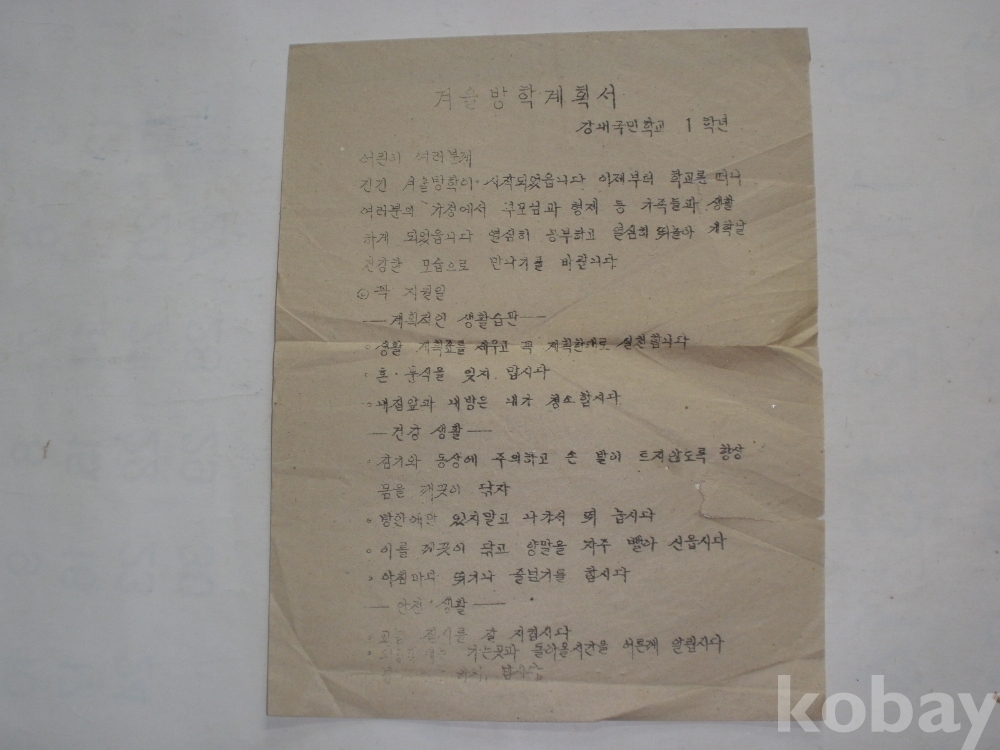 겨울방학계획서
강내국민학교 1 학년
어린이 여러분께
긴긴 겨울방학이 시작되었읍니다 이제부터 학교를 떠나
여러분의 가정에서 부모님과 형제 등 가족들과 생활
하게 되었읍니다 열심히 공부하고 열심히 뛰놀아 개학날
건강한 모습으로 만나기를 바랍니다
꼭 지킬일
—계획적인 생활습관—
◦ 생활 계획표를 세우고 꼭 계획한대로 실천합니다
◦ 혼·분식을 잊지 맙시다
◦ 내집앞과 내방은 내가 청소합시다
—건강 생활—
◦ 감기와 동상에 주의하고 손 발이 트지않도록 항상
몸을 깨끗이 닦자
◦ 방안에만 있지말고 나가서 뛰 놉시다
◦ 이를 깨끗이 닦고 양말을 자주 빨아 신읍시다
◦ 아침마다 뛰거나 줄넘기를 합시다
—안전 생활—
◦ 교통 질서를 잘 지킵시다
◦ 가는곳과 돌아올시간을 어른께 알립시다
하지 맙시다
kobay